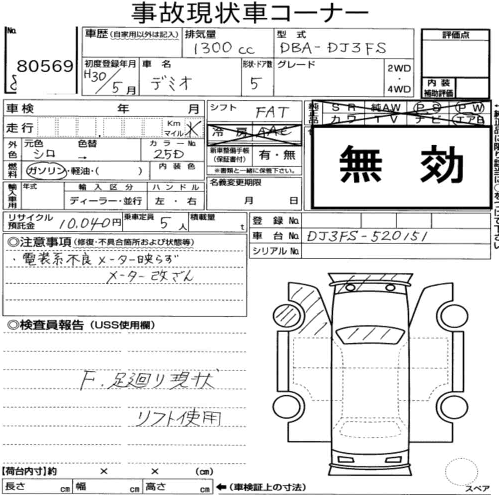 事故現状車コーナー
No. 80569
車歴 (自家用以外は記入)
排気量 1300cc
型式 DBA-DJ3FS
評価点
初度登録年月 H30年5月
車名 デミオ
形状・ドア数 5
グレード
2WD・4WD
内装補助評価
車検 年 月
シフト FAT
純正品 SR 純AW PS PW
カワ TV ナビ エアB
走行 Km マイル
冷房 AAC
無効
外色 元色 シロ → 色替
カラーNo. 25D
新車整備手帳(保証書付) 有・無
※書類と一緒に保管下さい。
燃料 ガソリン・軽油・( )
内装色
輸入車用 年式 輸入区分 ディーラー・並行 ハンドル 左・右
名義変更期限 月 日
リサイクル預託金 10,040円
乗車定員 5人
積載量 t
登録No.
車台No. DJ3FS-520151
シリアルNo.
◎注意事項 (修復・不具合箇所および状態等)
・電装系不良 メーター映らず
メーター改ざん
◎検査員報告 (USS使用欄)
F.足廻り現状
リフト使用
【荷台内寸】約 × × (cm)
長さ cm 幅 cm 高さ cm ←(車検証上の寸法)
スペア